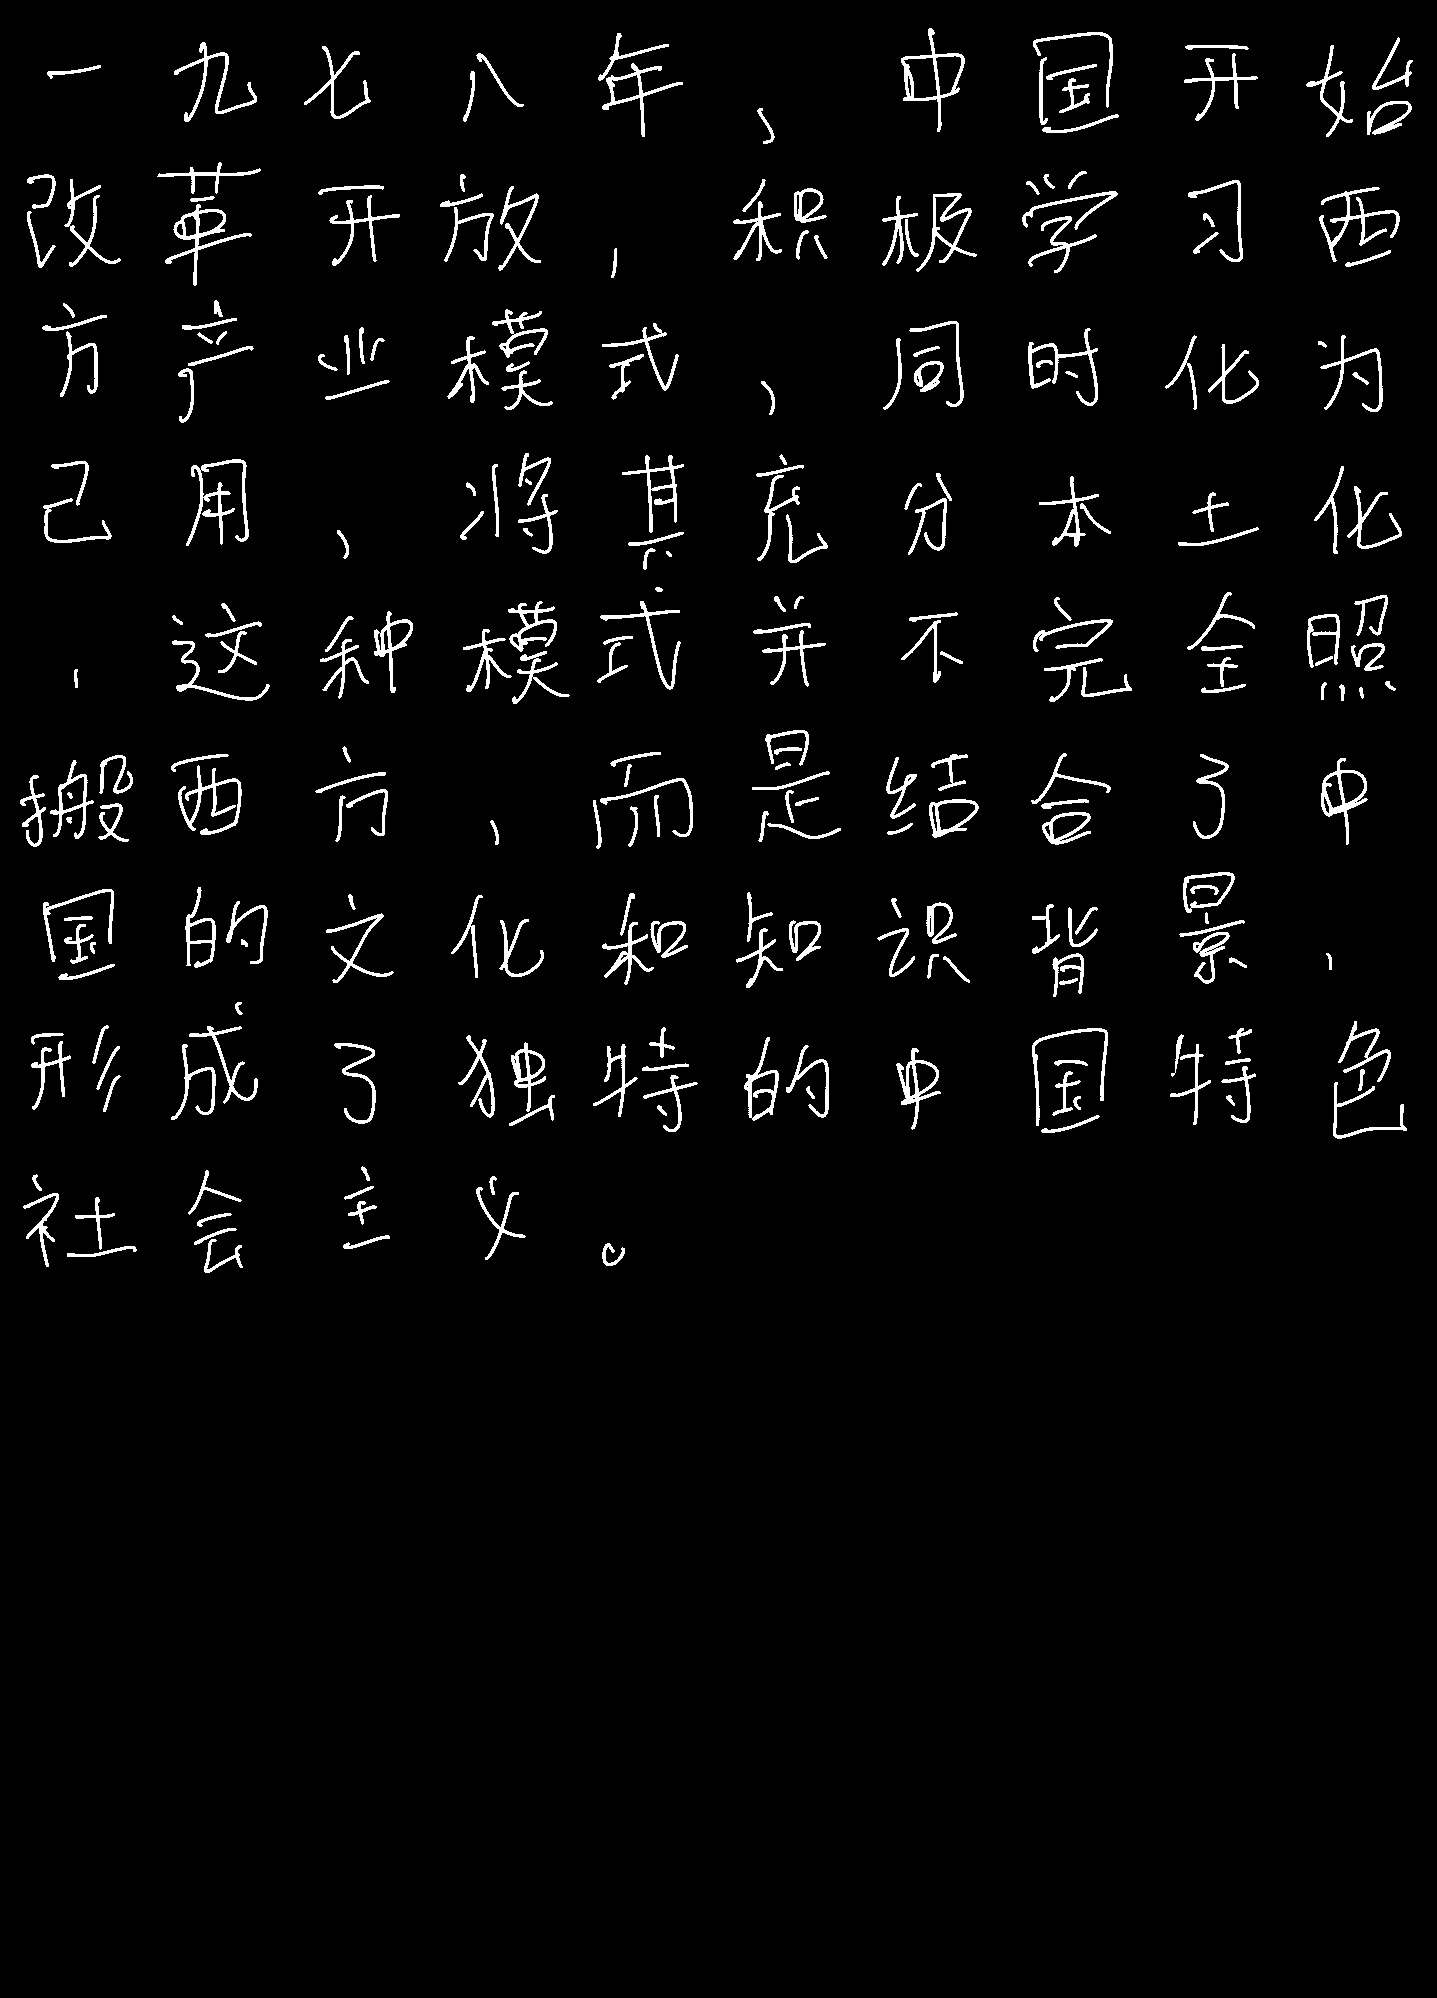 一九七八年、中国开始
改革开放，积极学习西
方产业模式、同时化为
己用、将其充分本土化
，这种模式并不完全照
搬西方、而是结合了中
国的文化和知识背景，
形成了独特的中国特色
社会主义。